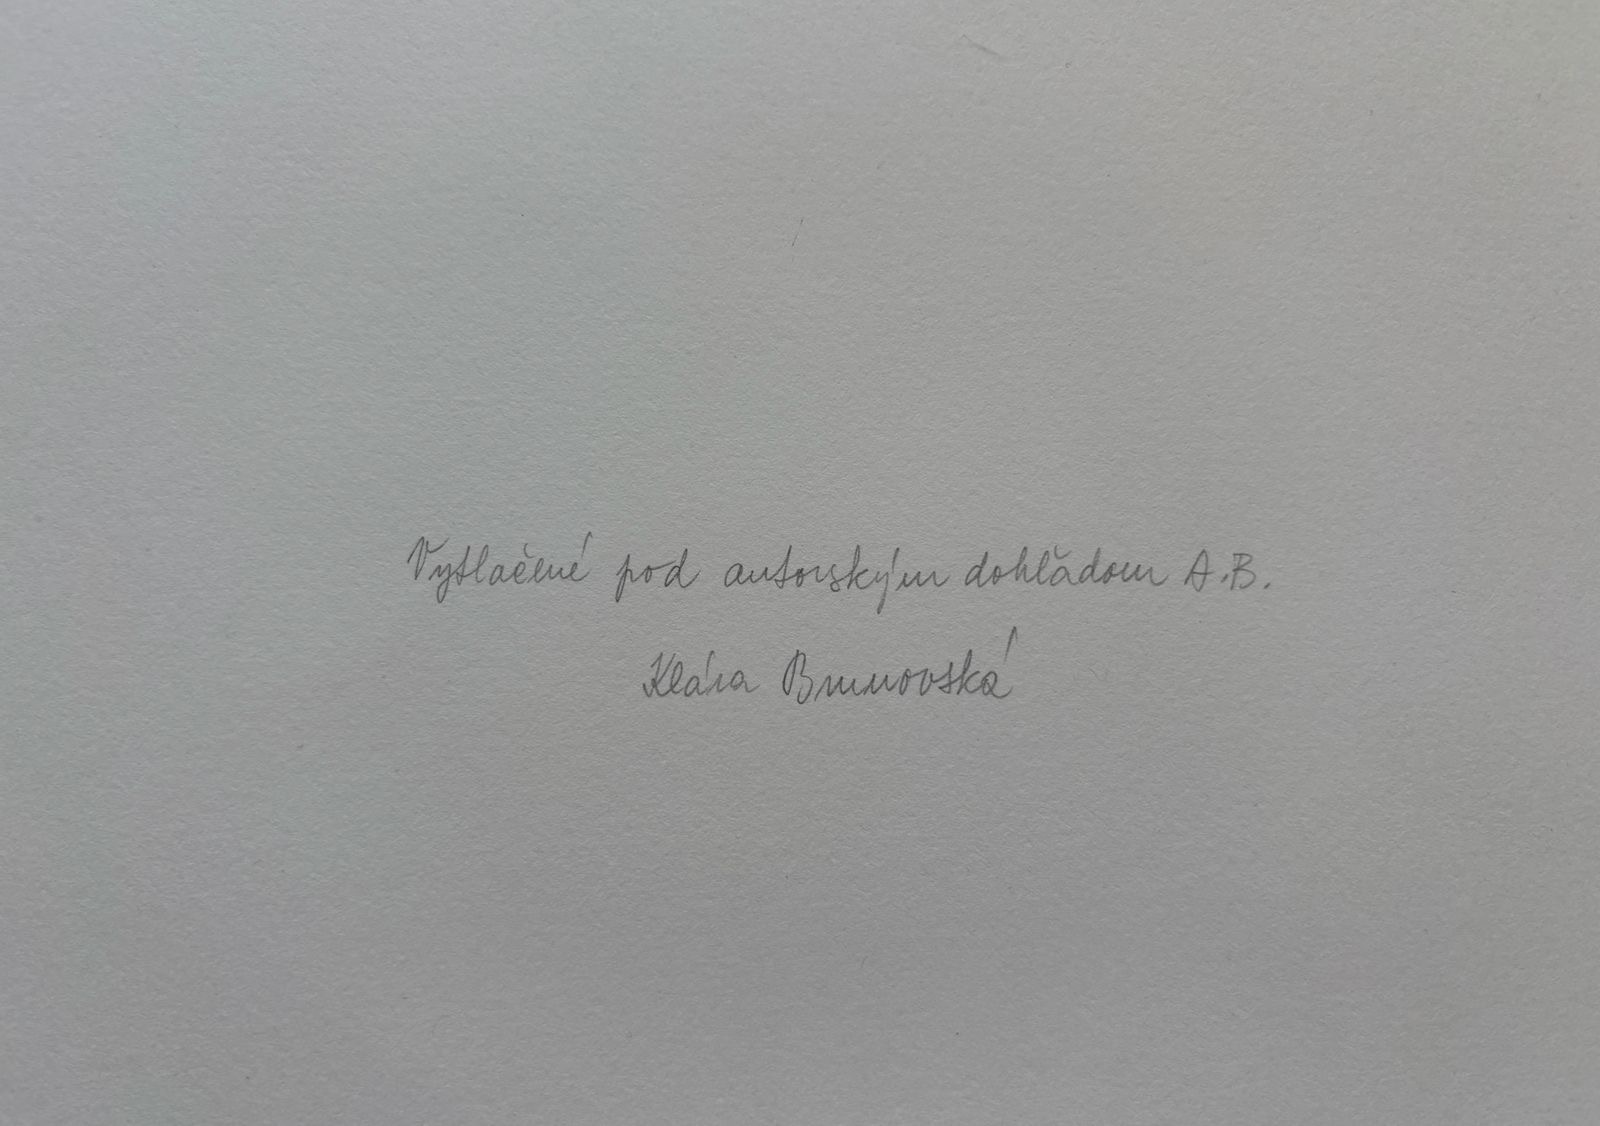 Vytlačené pod autorským dohľadom A.B.
Klára Brunovská